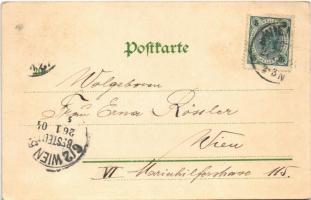 Postkarte
Wolgeboren
Frau Erna Rössler
Wien
VI Mariahilferstrasse 115.
6/2 WIEN
BESTELLT
26.1.04